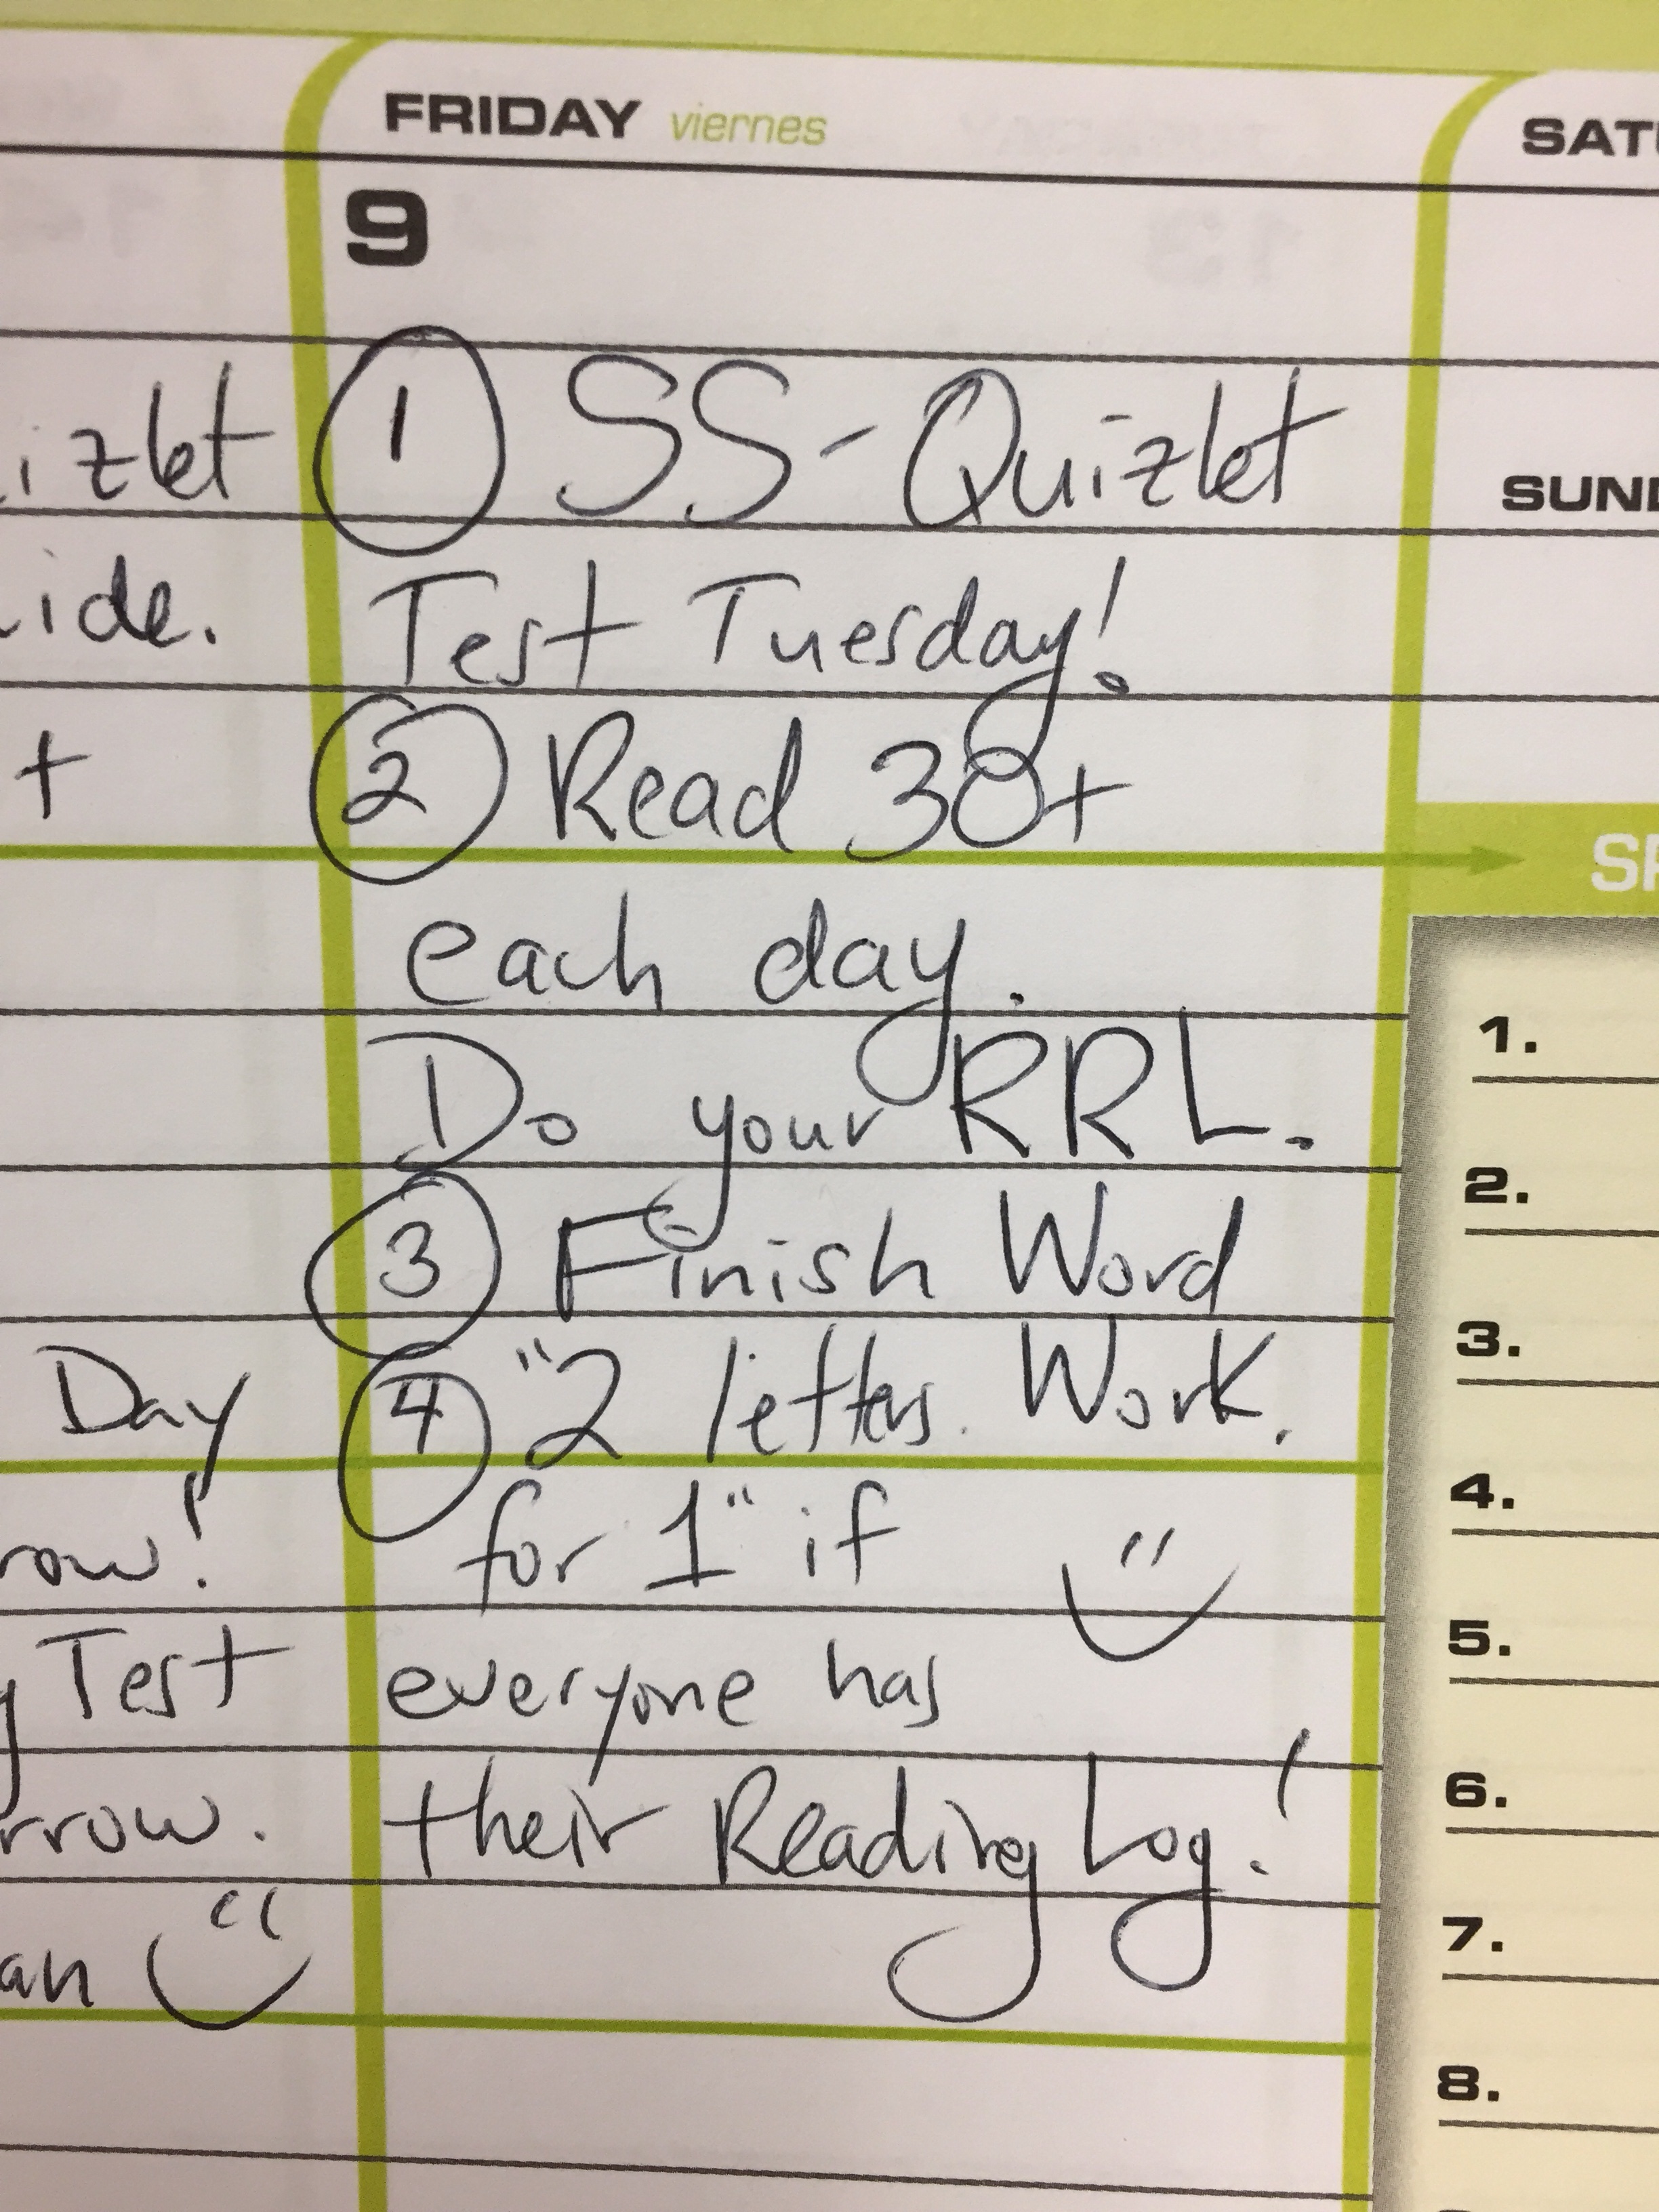 FRIDAY viernes
SATU
9
izlet
① SS-Quizlet
SUND
ide.
Test Tuesday!
+
② Read 30+
SP
each day.
1.
Do your RRL.
2.
③ Finish Word
Work.
3.
Day
④ "2 letters
for 1" if
4.
row!
Test
everyone has
5.
rrow.
their Reading Log!
6.
an
7.
8.